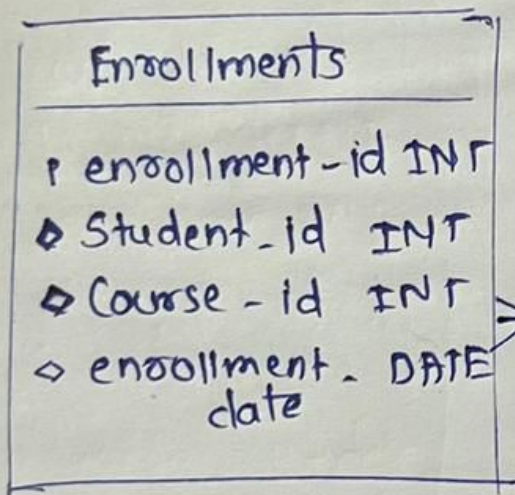 Enrollments
enrollment-id INT
Student-id INT
Course-id INT
enrollment- DATE
date